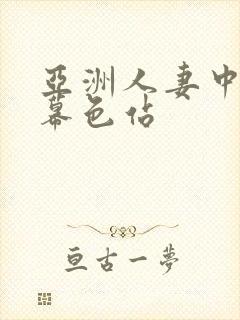 亞洲人妻中
幕色佔
亘古一夢